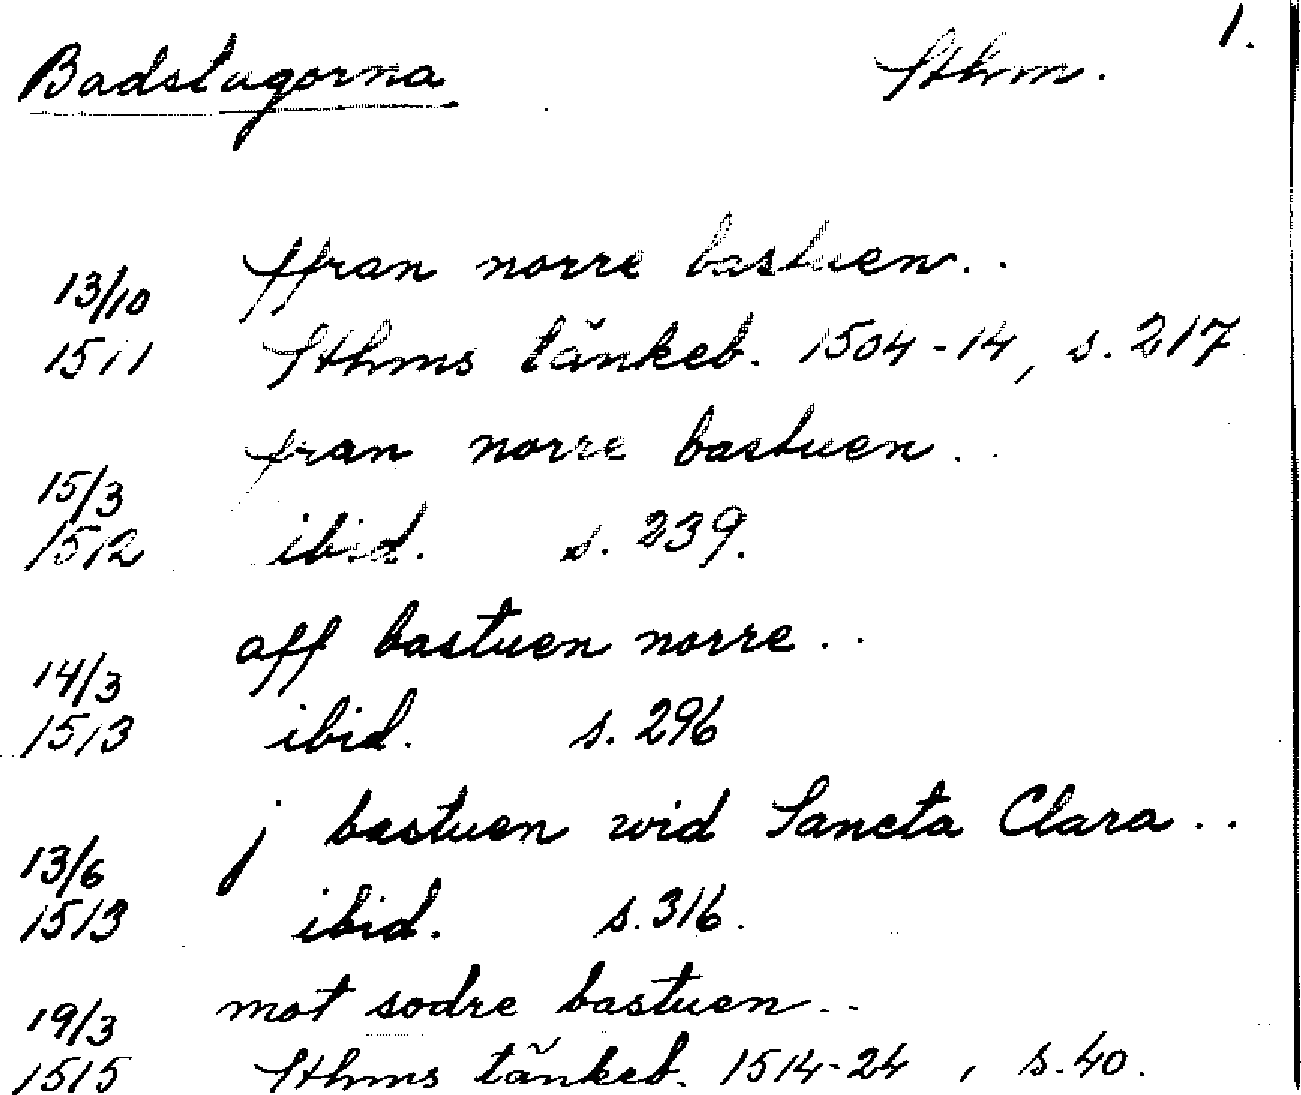 1.
Badstugorna Sthm.
ffran norre bastuen..
13/10
1511 Sthms tänkeb. 1504-14, s. 217
fran norre bastuen..
15/3
1512 ibid. s. 239.
aff bastuen norre..
14/3
1513 ibid. s. 296
j bastuen wid Sancta Clara..
13/6
1513 ibid. s. 316.
mot sodre bastuen..
19/3
1515 Sthms tänkeb. 1514-24, s. 40.